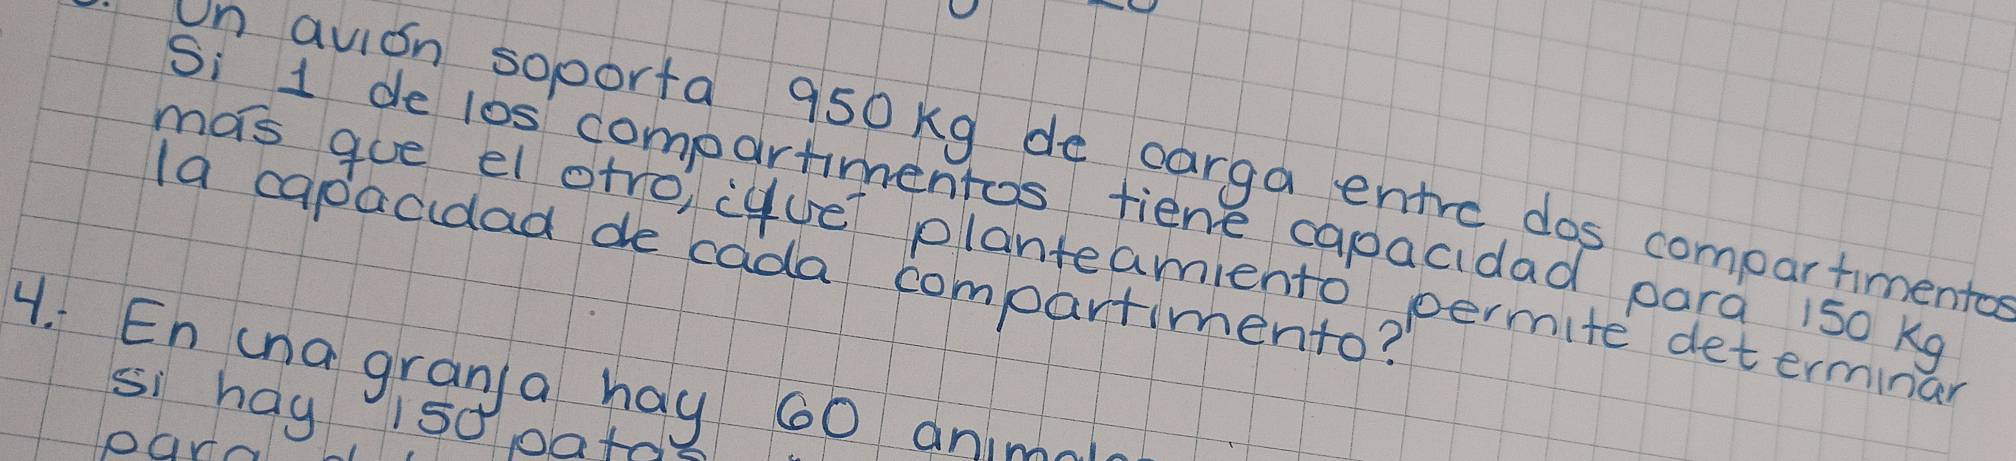 Un avión soporta 950 kg de carga entre dos compartimentos
Si 1 de los compartimentos tiene capacidad para 150 kg
más que el otro, ¿qué planteamiento permite determinar
la capacidad de cada compartimento?
4. En una granja hay 60
si hay 150 patas